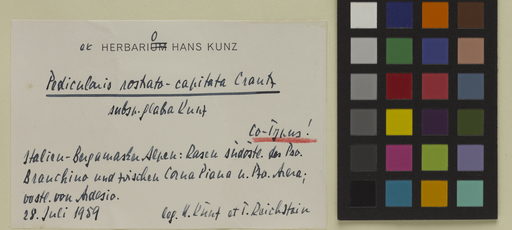 O
ex HERBARIUM HANS KUNZ
Pedicularis rostrato-capitata Crantz
subsp. glabra Kunz
Co-Typus!
Italien-Bergamasker Alpen: Rasen südöstl. des Pso.
Branchino und zwischen Corna Piana u. Pso. Arera;
nordöstl. von Ardesio.
28. Juli 1959 leg. H. Kunz et T. Reichstein